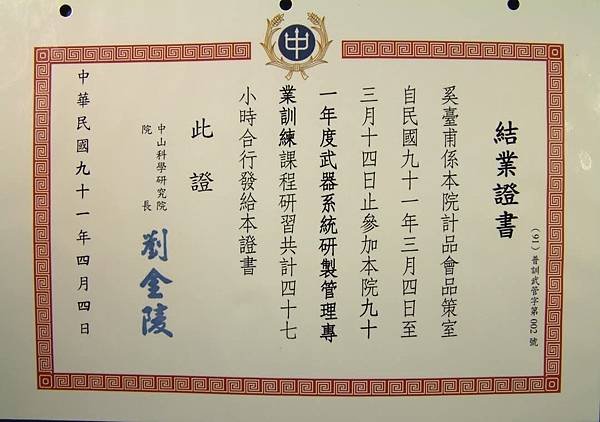 結業證書
(91)普訓武管字第002號
奚臺甫係本院計品會品策室
自民國九十一年三月四日至
三月十四日止參加本院九十
一年度武器系統研製管理專
業訓練課程研習共計四十七
小時合行發給本證書
此證
中山科學研究院
院長
劉金陵
中華民國九十一年四月四日
中